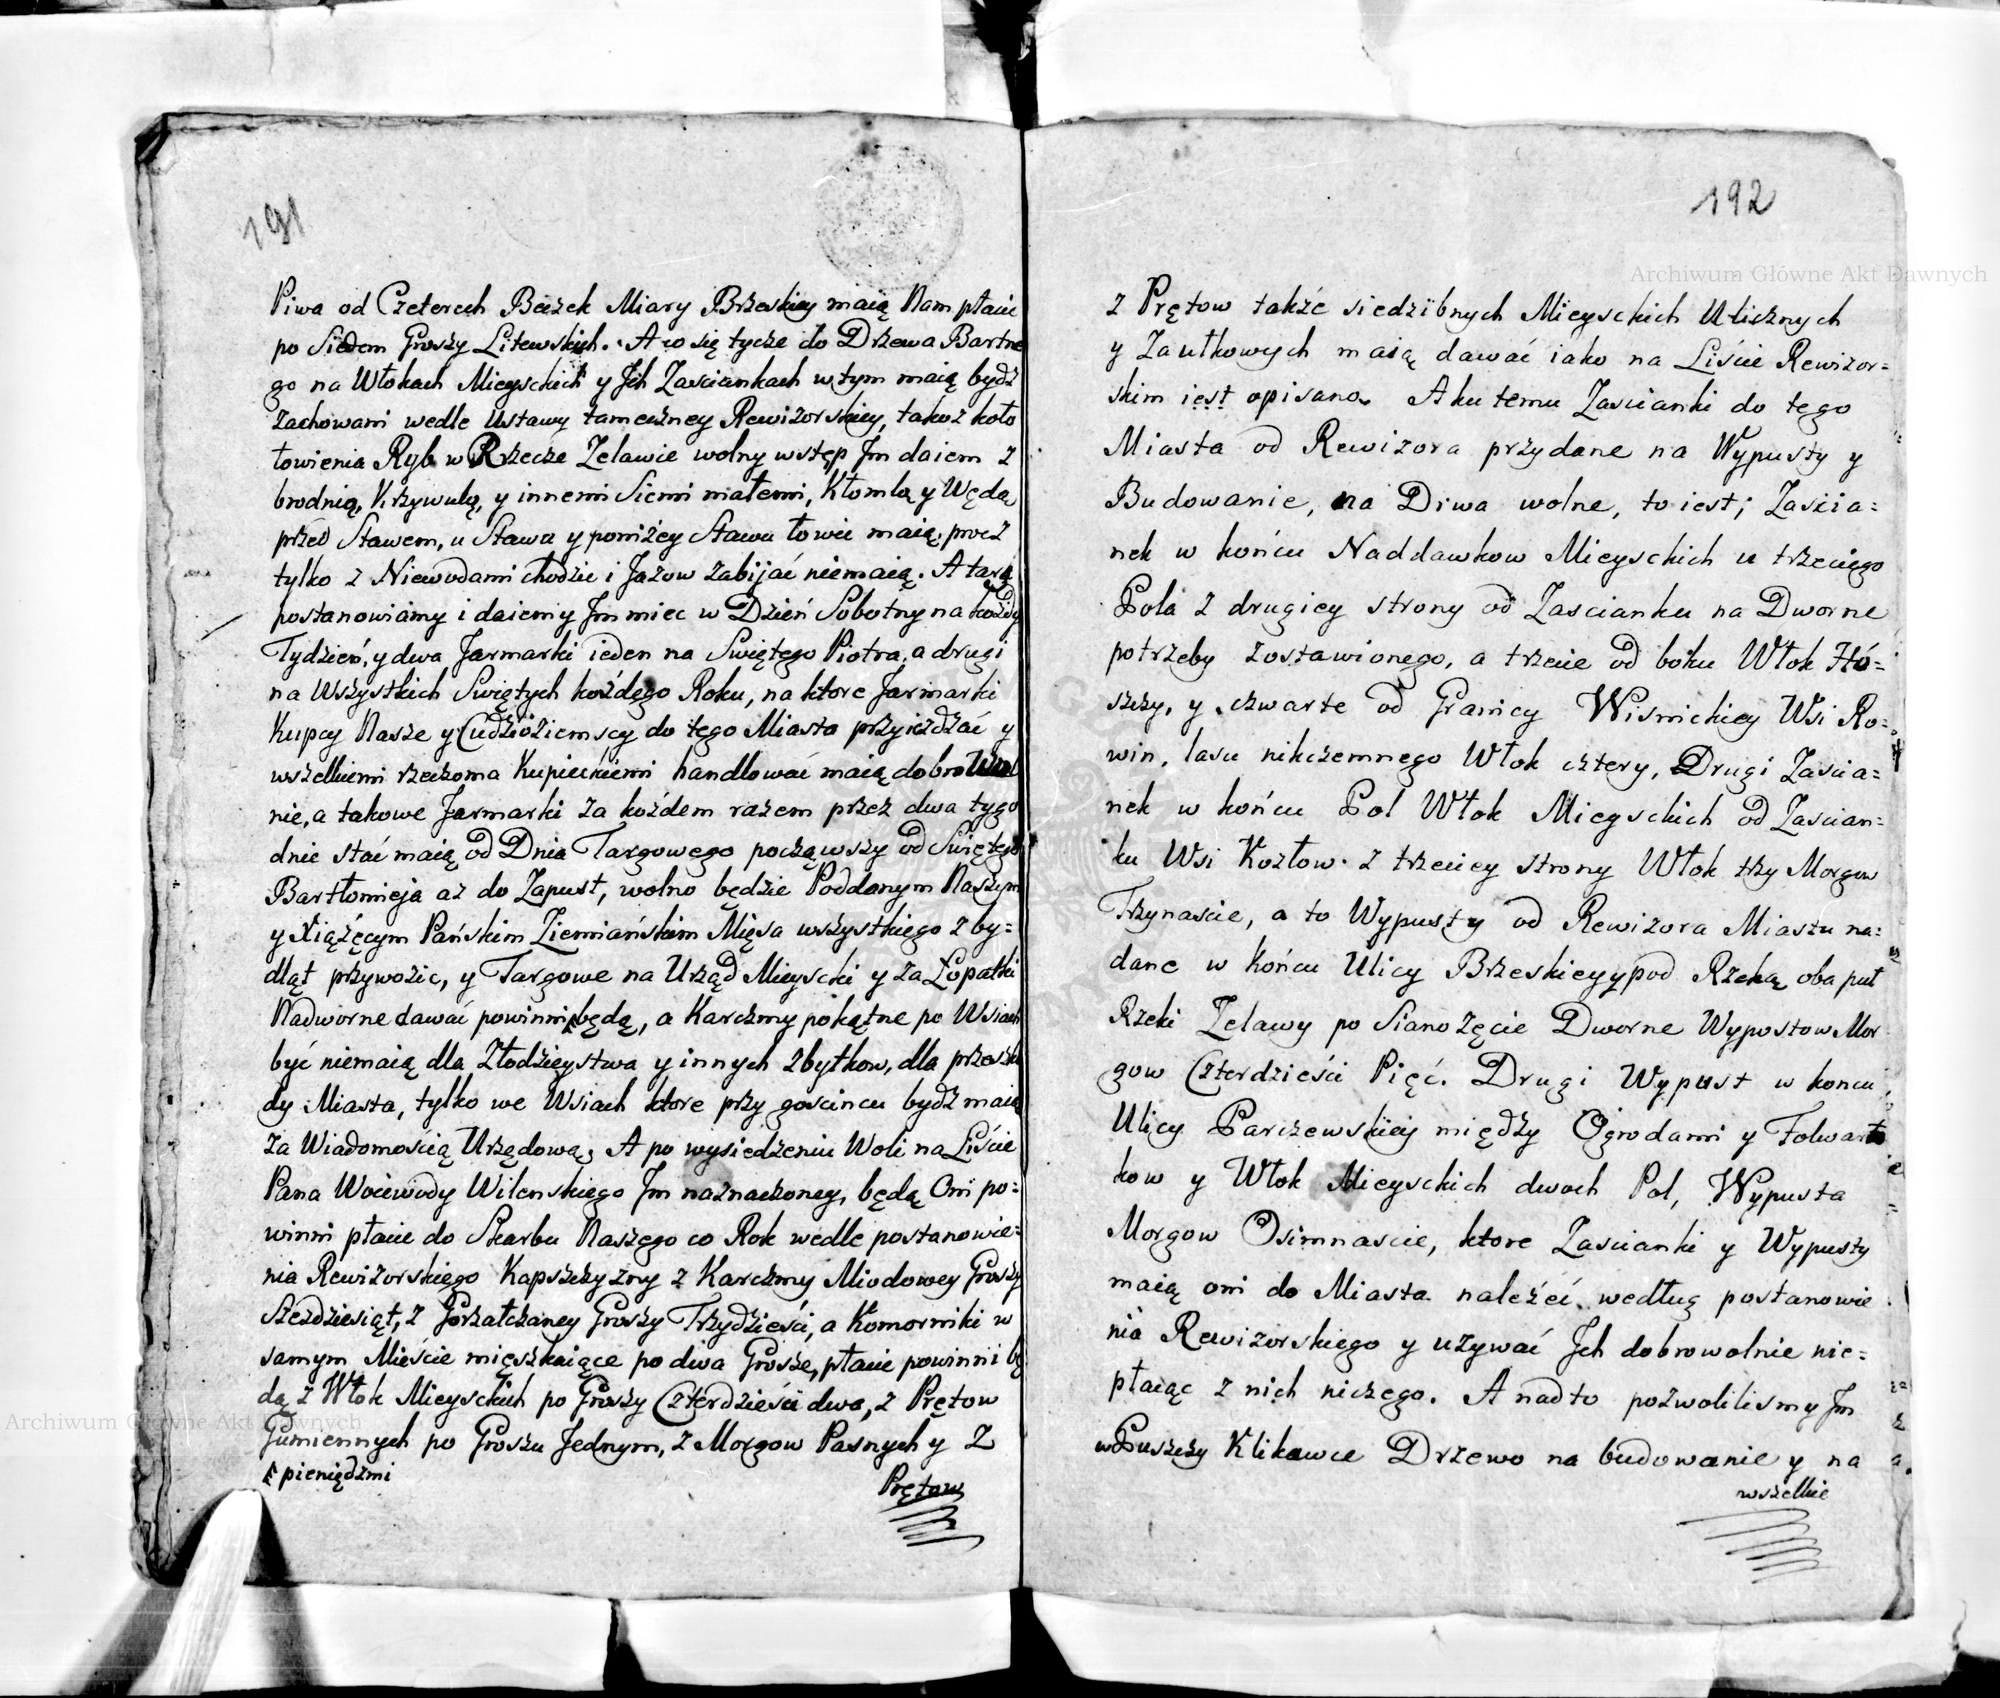 191
Piwa od Czterech Beczek Miary Brzeskiey maią Nam płacic
po Siedem Groszy Litewskich. A co się tycze do Drzewa Bartne
go na Włokach Mieyschich y Jch Zasciankach w tym maią bydź
zachowani wedle Ustawy tameczney Rewizorskiey, takoż koło
łowienia Ryb w Rzecze Zelawie wolny wstęp Jm daiem z
brodnią, Krzywulą, y innemi Siemi małemi, Kłomlą y Wędą
przed Stawem, u Stawa y poniżey Stawu łowic maią, procz
tylko z Niewodami chodzic i Jazow zabijać niemaią. A targ
postanowiamy i daiemy Jm miec w Dzień Sobotny na każdy
Tydzień, y dwa Jarmarki ieden na Swiętego Piotra, a drugi
na Wszystkich Swiętych każdego Roku, na ktore Jarmarki
Kupcy Nasze y Cudzoziemscy do tego Miasta przyieżdżać y
wszelkiemi rzeczoma Kupieckiemi handlować maią dobrowol
nie, a takowe Jarmarki za każdem razem przez dwa tygo
dnie stać maią od Dnia Targowego począwszy od Swiętego
Bartłomieja az do Zapust, wolno będzie Poddanym Naszym
y Xiążęcym Pańskim Ziemiańskim Mięsa wszystkiego z by=
dląt przywozic, y Targowe na Urząd Mieyscki y za Łopatki
Nadworne dawać powinni będą, a Karczmy pokątne po Wsiach
być niemaią dla Złodzieystwa y innych zbytkow, dla przeszko
dy Miasta, tylko we Wsiach ktore przy goscincu bydź maią
za Wiadomoscią Urzędową. A po wysiedzeniu Woli na Liście
Pana Woiewody Wilenskiego Jm naznaczoney, będą Oni po=
winni płacic do Skarbu Naszego co Rok wedle postanowie=
nia Rewizorskiego Kapszczyzny z Karczmy Miodowey Groszy
Szezdziesiąt, z Gorzałczaney Groszy Trzydzieści, a Komorniki w
samym Mieście mięszkaiące po dwa Grosze, płacic powinni bę
dą z Włok Mieyschich po Groszy Czterdzieści dwa, z Prętow
Gumiennych po Groszu Jednym, z Morgow Pasnych y Z
pieniędzmi
Prętow
192
z Prętow także siedzibnych Mieyschich Ulicznych
y Zaułkowych maią dawać iako na Liście Rewizor=
skim iest opisano. A ku temu Zascianki do tego
Miasta od Rewizora przydane na Wypusty y
Budowanie, na Drwa wolne, to iest; Zascia=
nek w końcu Naddawkow Mieyschich u trzeciego
Pola z drugiey strony od Zascianku na Dworne
potrzeby zostawionego, a trzecie od boku Włok Hó=
szczy, y czwarte od Granicy Wisnickiey Wsi Ro=
win, lasu nikczemnego Włok cztery, Drugi Zascia=
nek w końcu Pol Włok Mieyschich od Zascian=
ku Wsi Kozłow. z trzeciey strony Włok trzy Morgow
Trzynascie, a to Wypusty od Rewizora Miastu na=
dane w końcu Ulicy Brzeskiey y pod Rzeką oba puł
Rzeki Zelawy po Siano zęcie Dworne Wypostow Mor
gow Czterdzieści Pięć. Drugi Wypust w koncu
Ulicy Parczewskiey między Ogrodami y Folwark
kow y Włok Mieyschich dwoch Pol, Wypusta
Morgow Osimnascie, ktore Zascianki y Wypusty
maią oni do Miasta należeć według postanowie
nia Rewizorskiego y używać Jch dobrowolnie nie=
płaiąc z nich niczego. A nadto pozwolilismy Jm
w Puszczy Klikawce Drzewo na budowanie y na
wszelkie
Archiwum Główne Akt Dawnych
Archiwum Główne Akt Dawnych